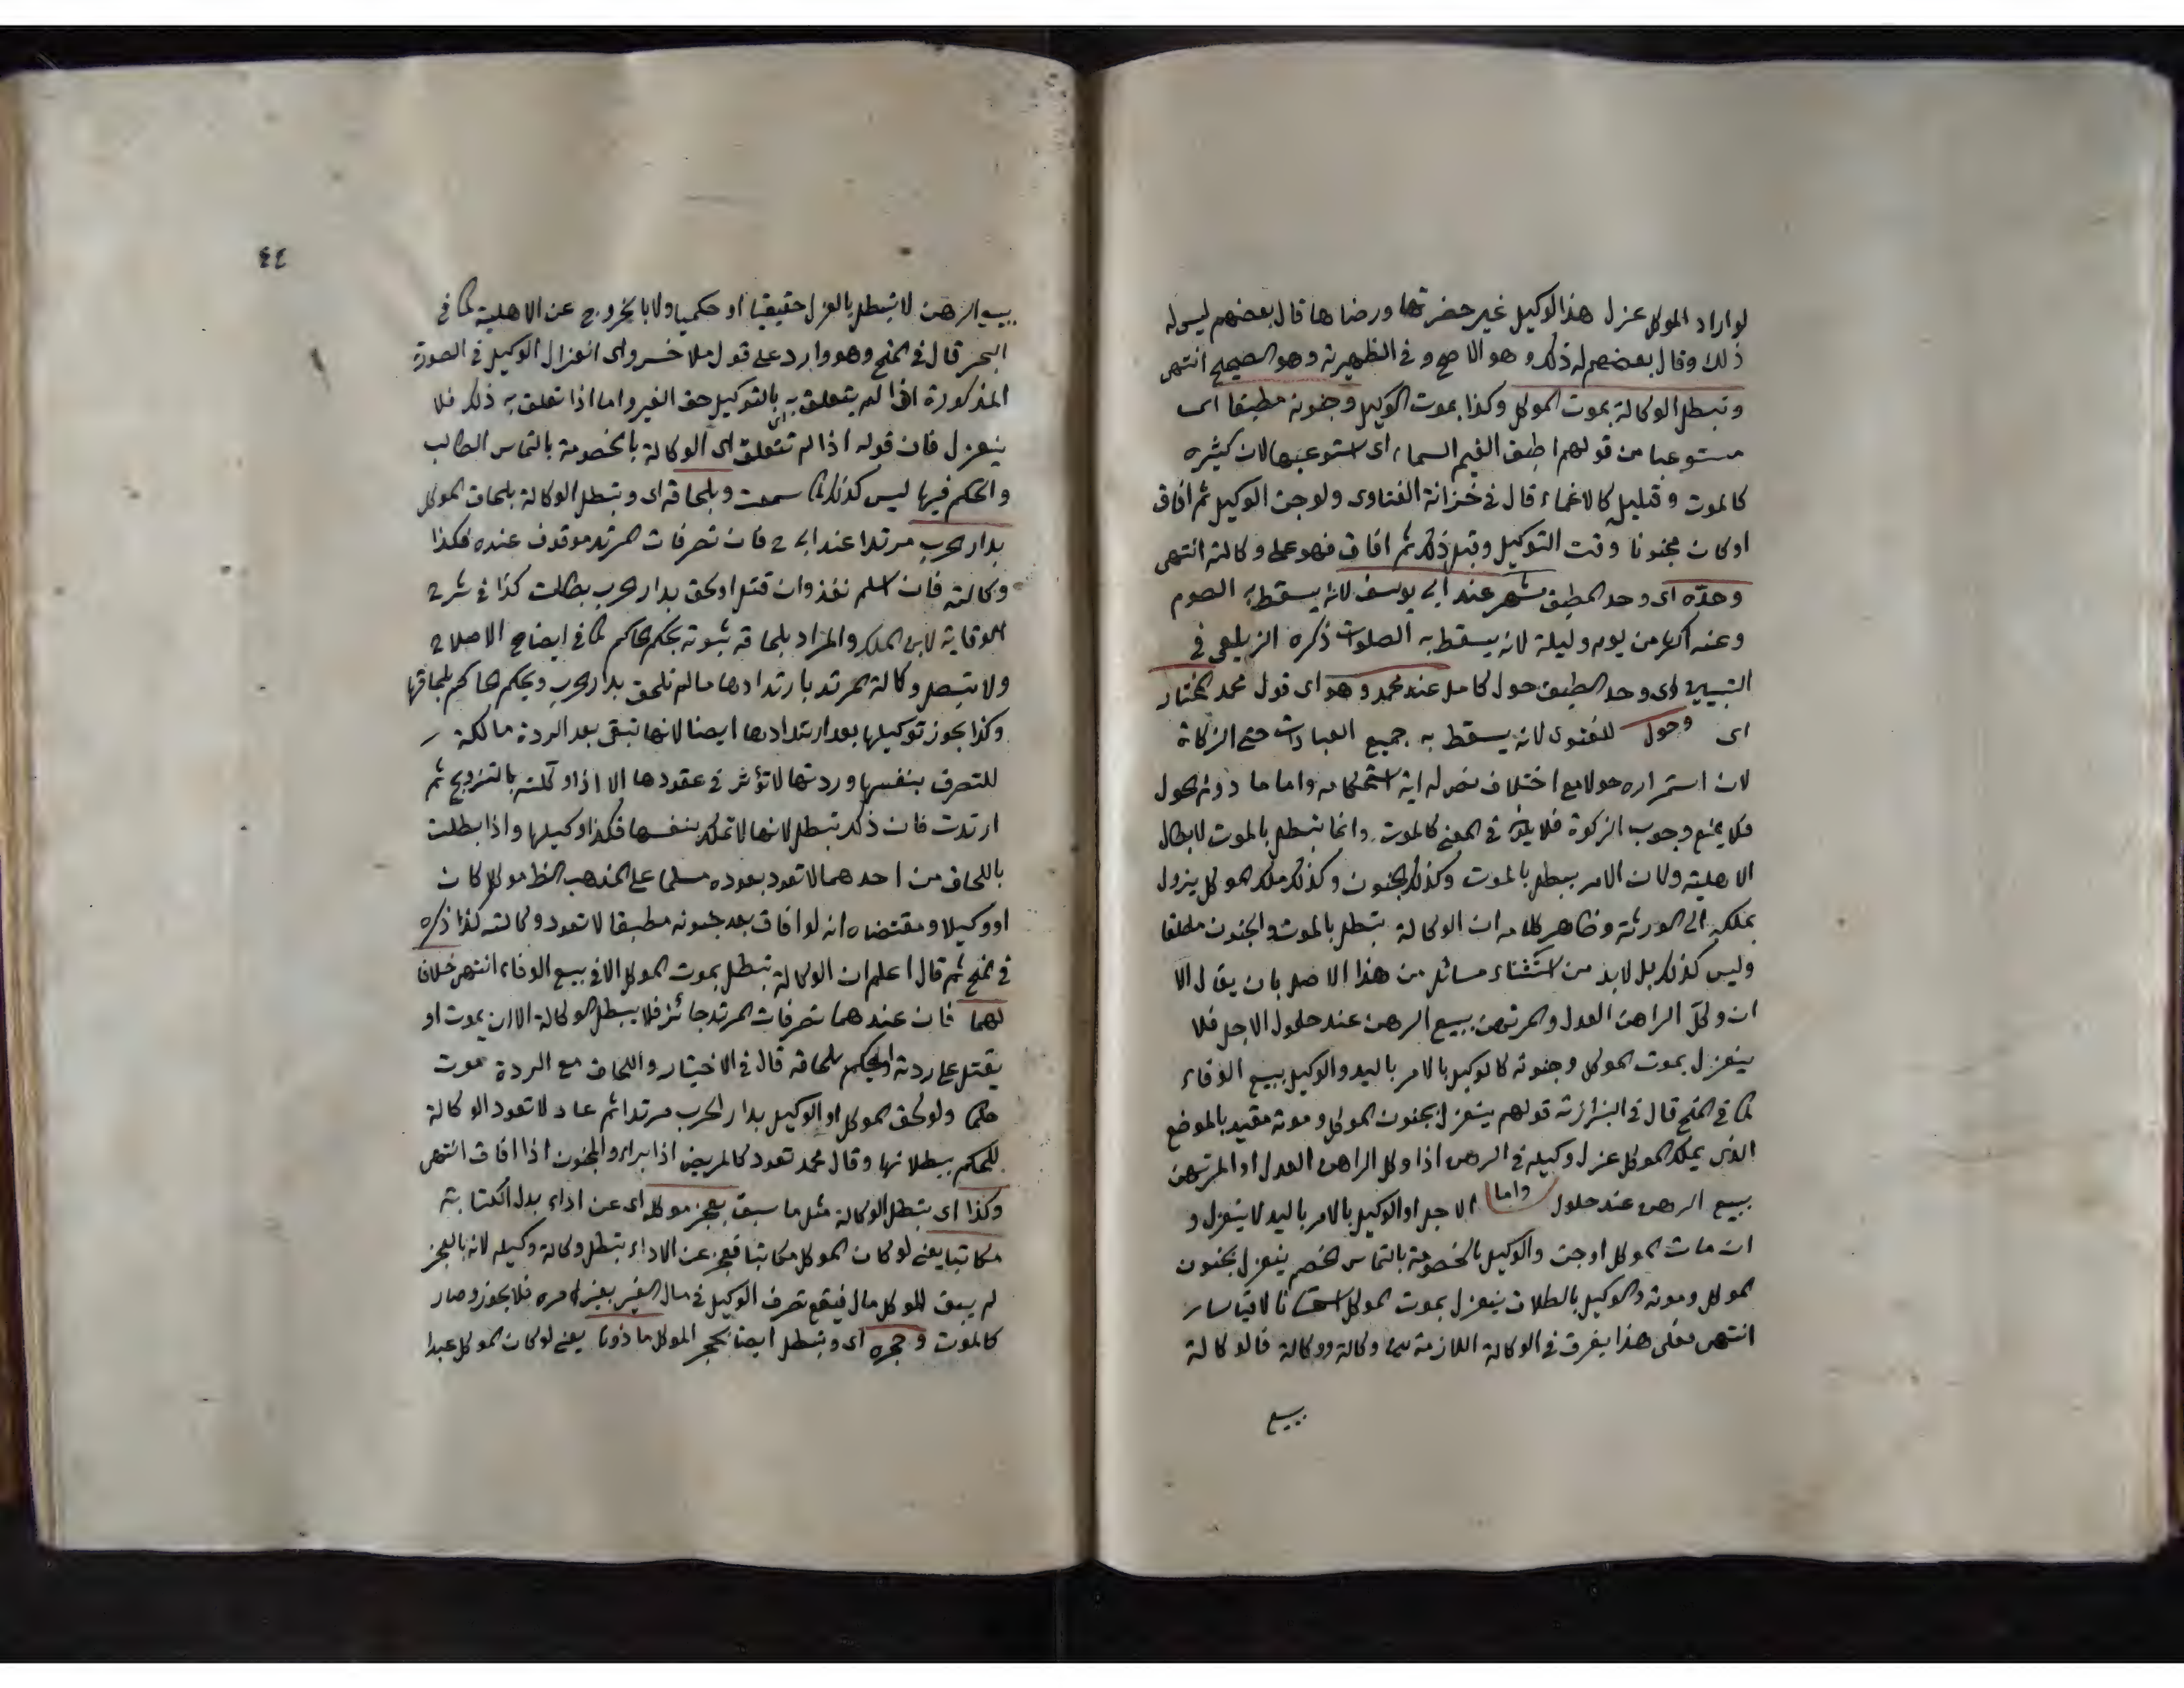 لو اراد الموكل عزل هذا الوكيل غير حضرتها ورضاها قال بعضهم ليس له
ذلك وقال بعضهم له ذلك وهو الاصح وفي الظهيرية وهو الصحيح انتهى
وتبطل الوكالة بموت الموكل وكذا بموت الوكيل وجنونه مطبقا اى
مستوعبا من قولهم اطبق الغيم السماء اى استوعبها لان كثيره
كالموت وقليله كالاغماء قال في خزانة الفتاوى ولو جن الوكيل ثم افاق
او كان مجنونا وقت التوكيل وقبل ذلك ثم افاق فهو على وكالته انتهى
وحده اى وحد المطبق شهر عند ابى يوسف لانه يسقط به الصوم
وعنه اكثر من يوم وليلة لانه يسقط به الصلوات ذكره الزيلعى في
التبيين اى وحد المطبق حول كامل عند محمد وهو اى قول محمد المختار
اى وحول للفتوى لانه يسقط به جميع العبادات حتى الزكاة
لان استمراره حولا مع اختلاف فصوله اية استحكامه واما ما دون الحول
فلا يمنع وجوب الزكوة فلا يكون في المعنى كالموت وانما تبطل بالموت لابطال
الاهلية ولان الامر يبطل بالموت وكذلك الجنون وكذلك ملك الموكل يزول
بملكه الى الورثة وظاهر كلامه ان الوكالة تبطل بالموت والجنون مطلقا
وليس كذلك بل لابد من استثناء مسائل من هذا الاصل بان يقال الا
ان وكل الراهن العدل والمرتهن ببيع الرهن عند حلول الاجل فلا
ينعزل بموت الموكل وجنونه كالوكيل بالامر باليد والوكيل ببيع الوفاء
كما في المنح قال في البزازية قولهم ينعزل بجنون الموكل وموته مقيد بالموضع
الذى يملك الموكل عزل وكيله في الرهن اذا وكل الراهن العدل او المرتهن
ببيع الرهن عند حلول واما الاجل او الوكيل بالامر باليد لا ينعزل و
ان مات الموكل او جن والوكيل بالخصومة بالتماس الخصم ينعزل بجنون
الموكل وموته والوكيل بالطلاق ينعزل بموت الموكل استحسانا لا قياسا
انتهى فعلى هذا يفرق في الوكالة اللازمة بين وكالة ووكالة فالوكالة
ببيع
٤٤
ببيع الرهن لا تبطل بالعزل حقيقيا او حكميا ولا بالخروج عن الاهلية كما في
البحر قال في المنح وهو وارد على قول ملا خسرو اى انعزال الوكيل في الصورة
المذكورة اذا لم يتعلق به اى بالتوكيل حق الغير واما اذا تعلق به ذلك فلا
ينعزل فان قوله اذا لم تتعلق اى الوكالة بالخصومة بالتماس الطالب
والحكم فيها ليس كذلك كما سمعت وبلحاقه اى وتبطل الوكالة بلحاق الموكل
بدار الحرب مرتدا عند ابى ح فان تصرفات المرتد موقوف عنده فكذا
وكالته فان اسلم نفذ وان قتل او لحق بدار الحرب بطلت كذا في شرح
الوقاية لابن الملك والمراد بلحاقه ثبوته بحكم الحاكم كما في ايضاح الاصلاح
ولا تبطل وكالة المرتد بارتدادها ما لم تلحق بدار الحرب ويحكم الحاكم بلحاقها
وكذا يجوز توكيلها بعد ارتدادها ايضا لانها تبقى بعد الردة مالكة
للتصرف بنفسها وردتها لا تؤثر في عقودها الا اذا وكلت بالتزويج ثم
ارتدت فان ذلك تبطل لانها لا تملك بنفسها فكذا وكيلها واذا بطلت
باللحاق من احدهما لا تعود بعوده مسلما على المذهب الظ موكلا كان
او وكيلا ومقتضاه انه لو افاق بعد جنونه مطبقا لا تعود وكالته كذا ذكره
في المنح ثم قال اعلم ان الوكالة تبطل بموت الموكل الا في بيع الوفاء انتهى خلافا
لهما فان عندهما تصرفات المرتد جائز فلا يبطل الوكالة الا ان يموت او
يقتل على ردته او يحكم بلحاقه قال في الاختيار واللحاق مع الردة موت
حكما ولو لحق الموكل او الوكيل بدار الحرب مرتدا ثم عاد لا تعود الوكالة
للحكم ببطلانها وقال محمد تعود كالمريض اذا برأ والمجنون اذا افاق انتهى
وكذا اى تبطل الوكالة مثل ما سبق بعجز موكله اى عن اداء بدل الكتابة
مكاتبا يعنى لو كان الموكل مكاتبا فعجز عن الاداء تبطل وكالة وكيله لانه بالعجز
لم يبق للموكل مال فيقع تصرف الوكيل في مال الغير بغير امره فلا يجوز وصار
كالموت وحجره اى وتبطل ايضا بحجر الموكل ماذونا يعنى لو كان الموكل عبدا